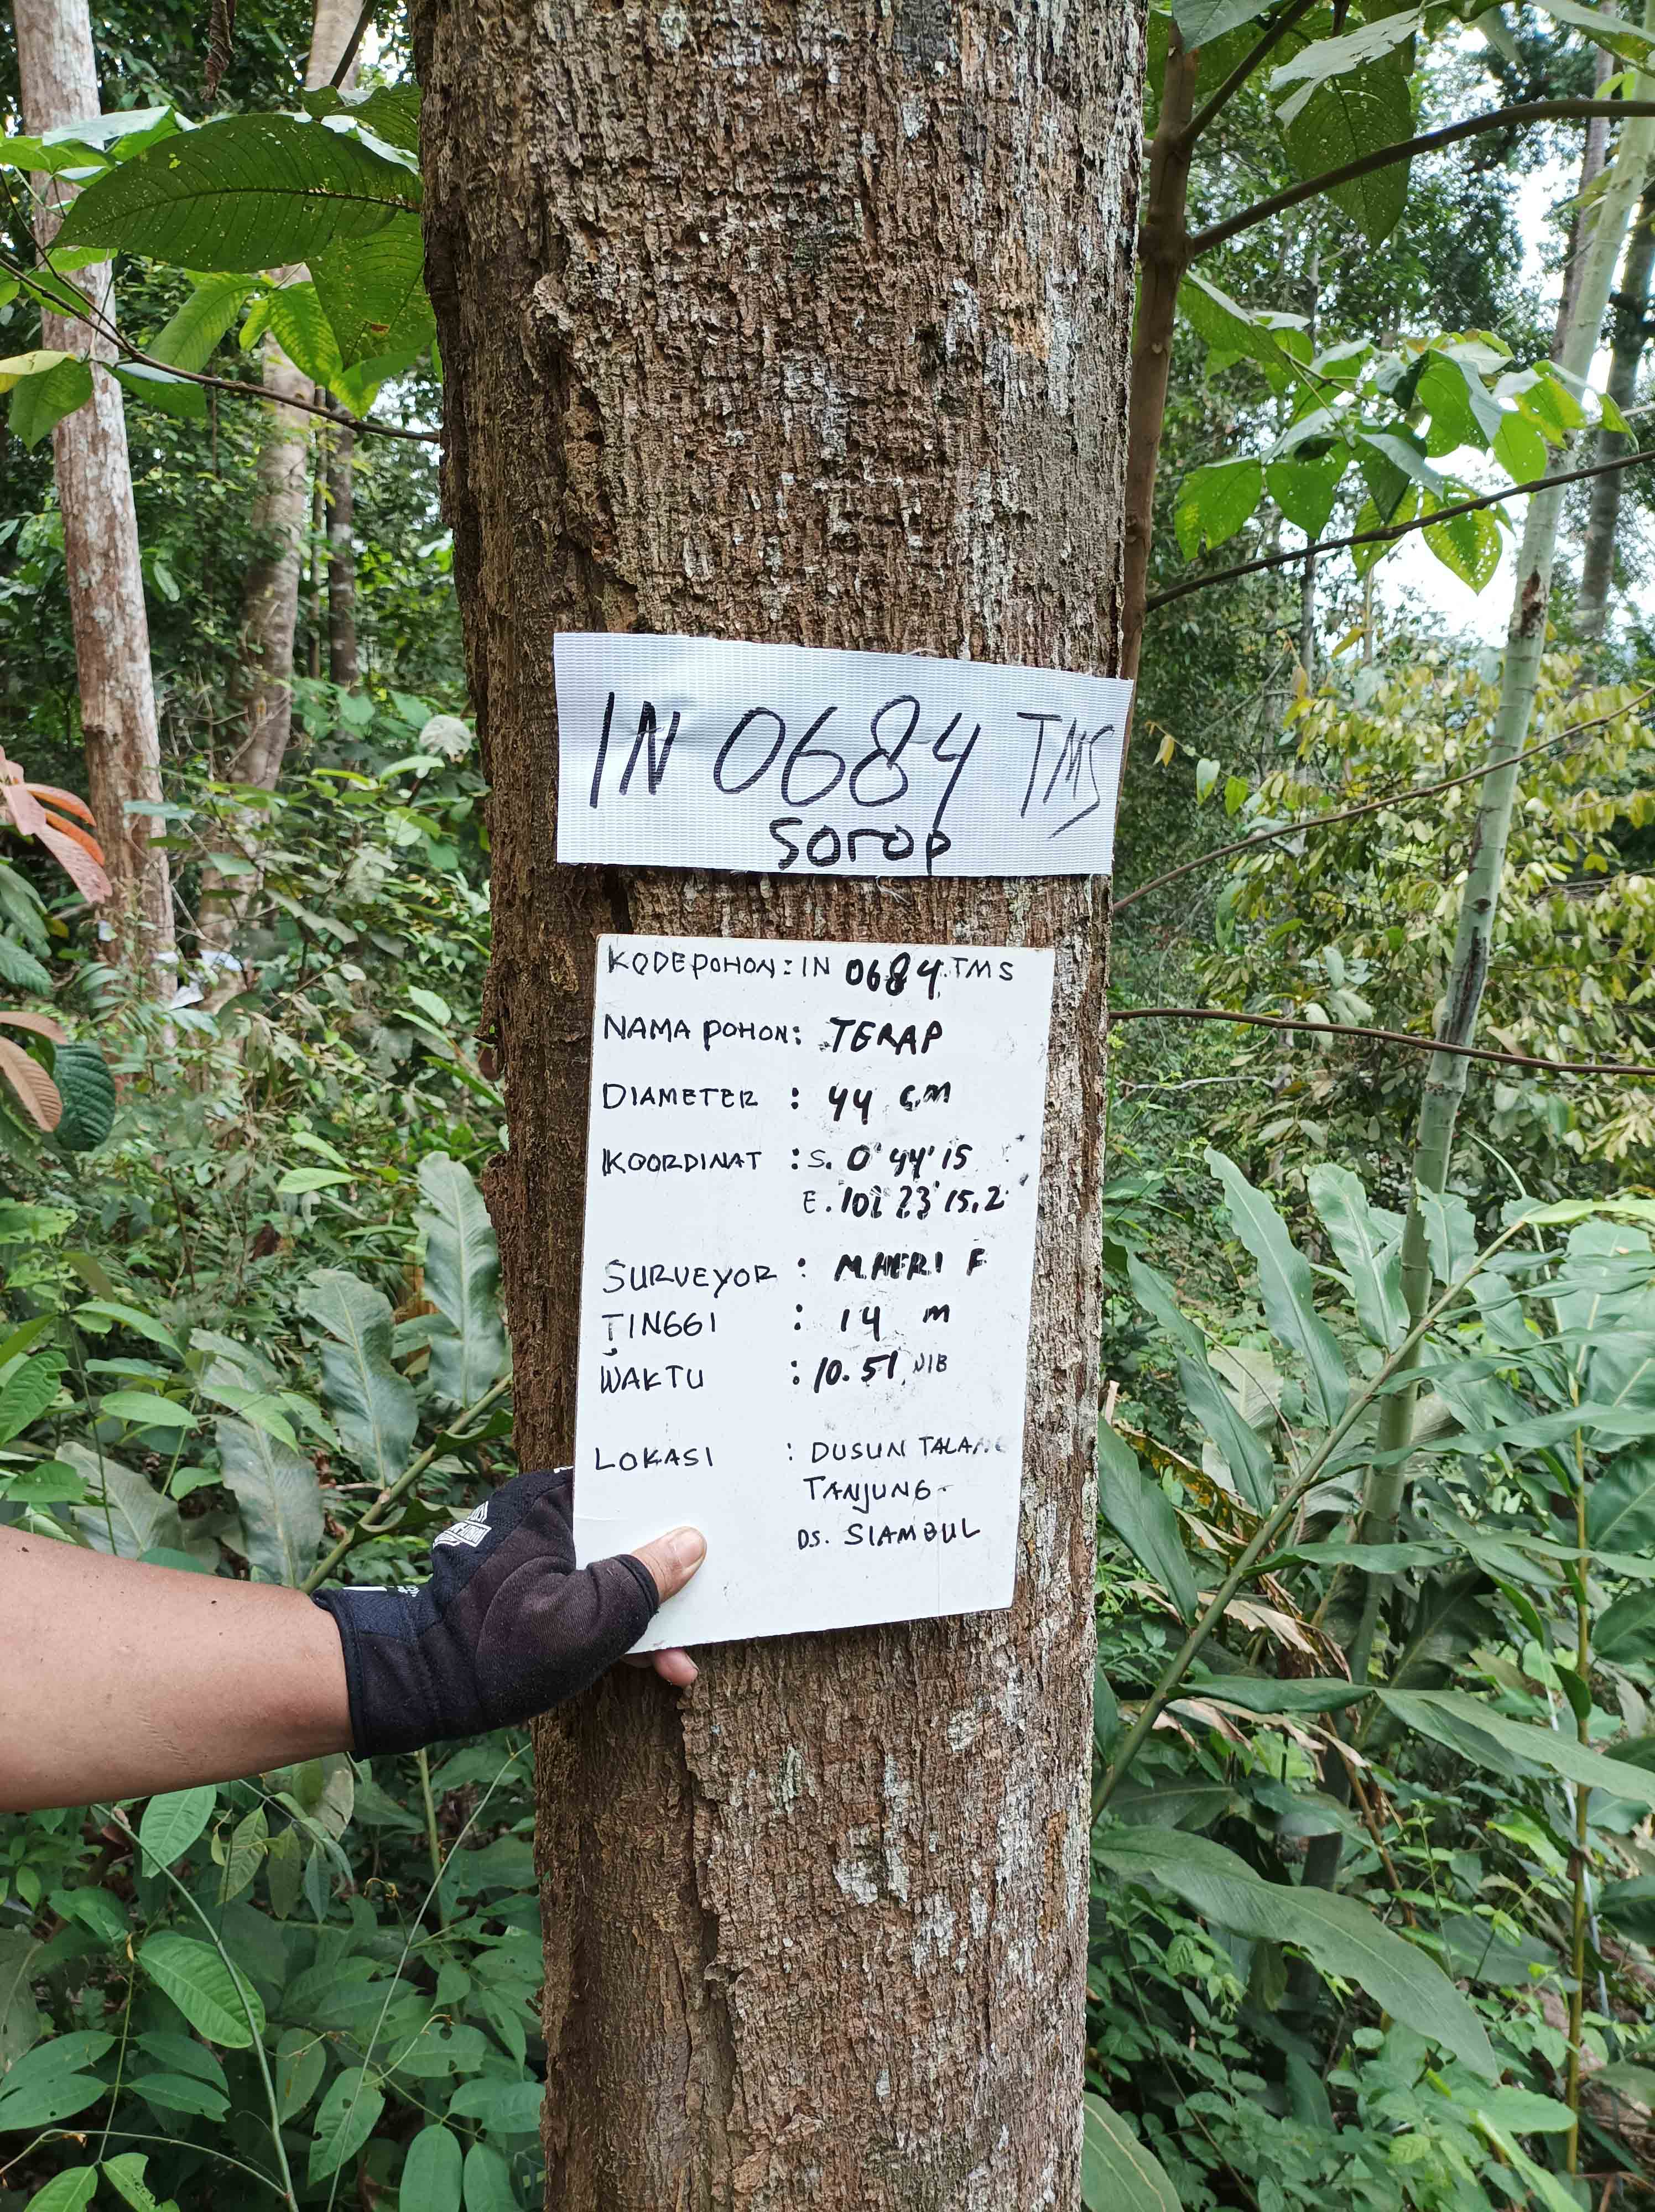 IN 0684 TMS
sorop
KODE POHON : IN 0684 TMS
NAMA POHON : TERAP
DIAMETER : 44 CM
KOORDINAT : S. 0° 44' 15
E. 101° 23' 15.2
SURVEYOR : M.HERI F
TINGGI : 14 m
WAKTU : 10.51 WIB
LOKASI : DUSUN TALANG
TANJUNG
DS. SIAMBUL